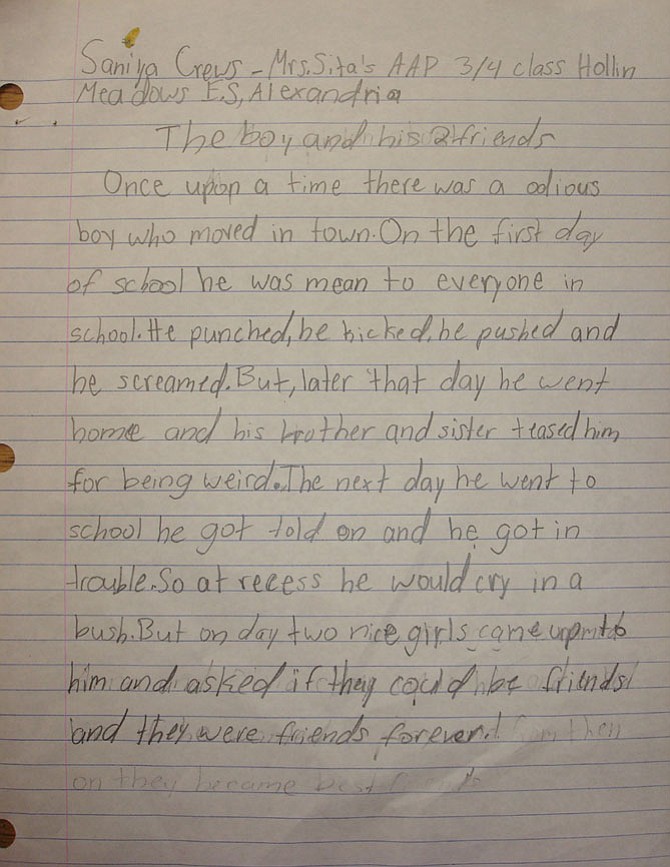 Saniya Crews - Mrs. Sita's AAP 3/4 class Hollin
Meadows E.S, Alexandria
The boy and his 2 friends
Once upon a time there was a odious
boy who moved in town. On the first day
of school he was mean to everyone in
school. He punched, he kicked, he pushed and
he screamed. But, later that day he went
home and his brother and sister teased him
for being weird. The next day he went to
school he got told on and he got in
trouble. So at recess he would cry in a
bush. But on day two nice girls came up to
him and asked if they could be friends
and they were friends forever! then
on they became best